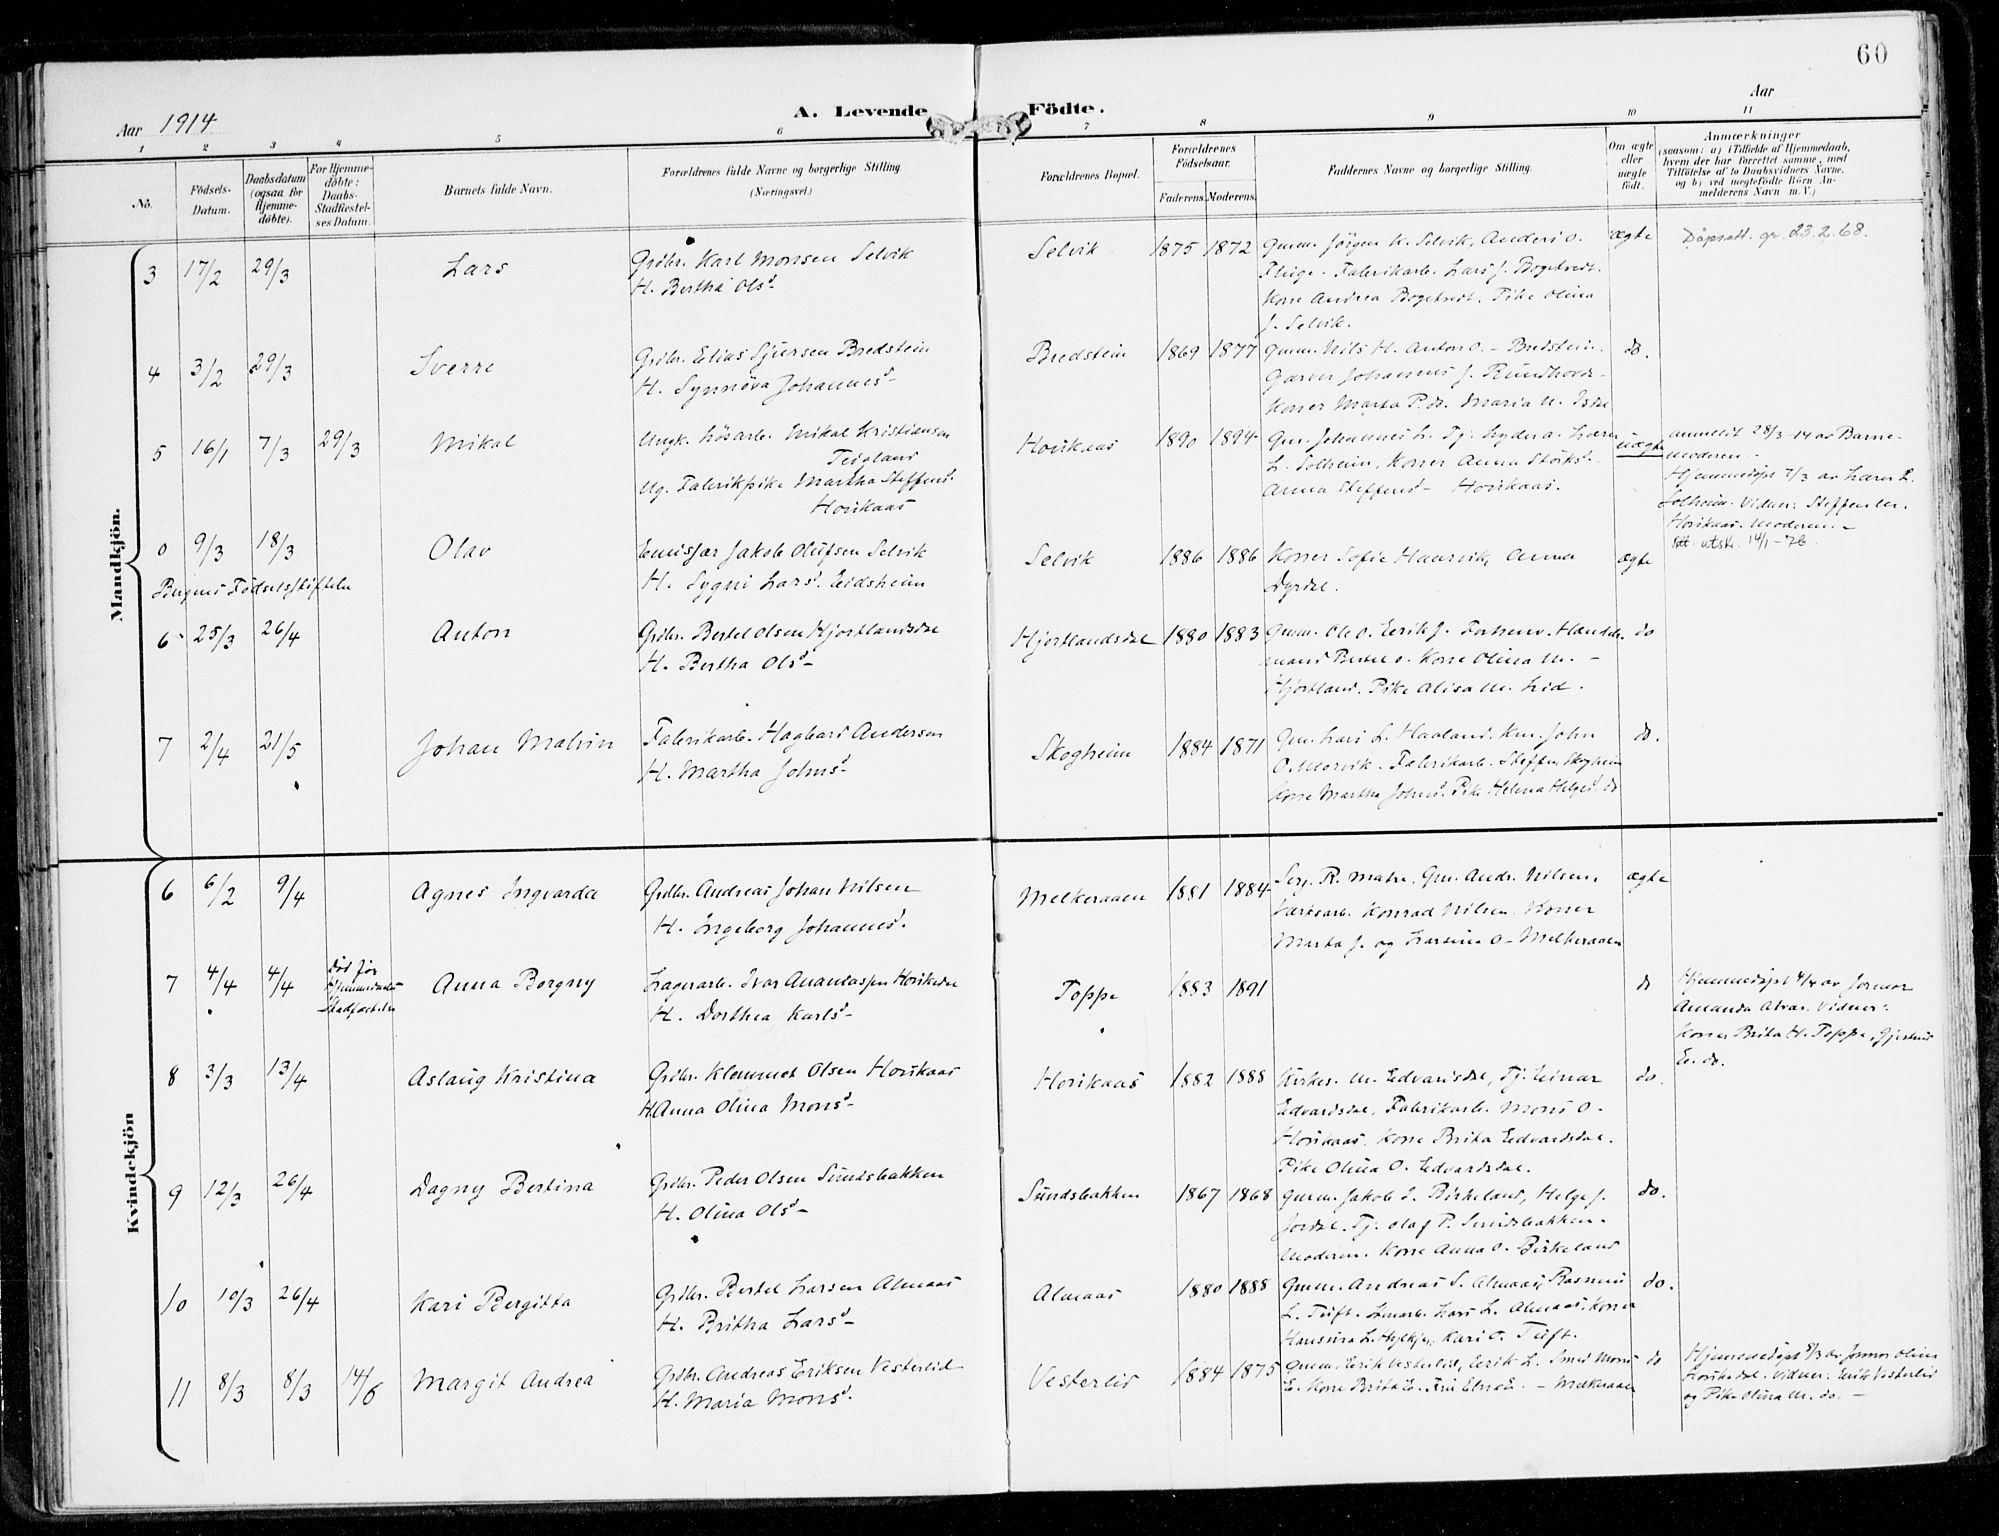 60
Aar 1914
A. Levende Födte.
Aar
1 2 3 4 5 6 7 8 9 10 11
No.
Födsels-Datum.
Daabsdatum (ogsaa for Hjemme-döbte).
For Hjemme-döbte: Daabs-Stadfæstel-ses Datum.
Barnets fulde Navn.
Forældrenes fulde Navne og borgerlige Stilling.
(Næringsvei.)
Forældrenes Bopæl.
Forældrenes Födselsaar.
Faderens. Moderens.
Faddernes Navne og borgerlige Stilling.
Om ægte eller uægte födt.
Anmærkninger
(saasom: a) i Tilfælde af Hjemmedaab,
hvem der har forrettet samme, med
Tilföielse af to Daabsvidners Navne,
og b) ved uægtefödte Börn An-
melderens Navn m. V.)
Mandkjön.
3 17/2 29/3 Lars
Grdbr. Karl Monsen Selvik
H. Bertha Olsd
Selvik 1875 1872
Gmm. Jörgen K. Selvik, Anders O.
Fabrikarb. Lars J. Bogetvedt.
Kone Andrea Bogetvedt. Pike Olina
J. Selvik.
ægte
Dåpsatt. gr. 23.2.68.
4 3/2 29/3 Sverre
Grdbr. Elias Sjursen Bredstein
H. Synnöva Johannesd
Bredstein 1869 1877
Gmm. Nils H. Anton O. - Bredstein.
Garver Johannes J.
Koner Marta P. do. Maria N.
do.
5 16/1 7/3 29/3 Mikal
Ungk. lösarb. Mikal Kristiansen
Teigland
Ug. Fabrikpike Martha Steffensd.
Hovikaas
Hovikaas 1890 1894
Gm. Johannes L. Tj. Lyder A. Lærer
L. Solheim, Koner Anna
Anna Steffensd - Hovikaas.
uægte
anmeldt 28/3-14 av Barne-
moderen -
Hjemmedöpt 7/3 av Lærer L.
Solheim. Vidner: Steffen
Hovikaas. Moderen. -
att. utst. 14/1-76.
0 9/3 18/3 Olav
Bergens Födselsstiftelse
Emissær Jakob Olufsen Selvik
H. Sygni Larsd. Eidsheim
Selvik 1886 1886
Koner Sofie Hanevik, Anna
Dyrdal.
ægte
6 25/3 26/4 Anton
Grdbr. Bertel Olsen Hjortlandsdal
H. Bertha Olsd -
Hjortlandsdal 1880 1883
Gmm. Ole O. Eerik J. Handels-
mand Bertel O. Kone Olina M. -
Hjortland. Pike Alisa M. Lid.
do
7 2/4 21/5 Johan Malvin
Fabrikarb. Hagbard Andersen
H. Martha Johnsd -
Skogheim 1884 1871
Gm. Lars L. Haaland. Km. John
O. Morvik. Fabrikarb. Steffen Skogheim
Kone Martha Johnsd. Pike Helena Helgesd. do
do.
Kvindekjön
6 6/2 9/4 Agnes Ingvarda
Grdbr. Andreas Johan Nilsen
H. Ingeborg Johannesd.
Melkeraaen 1881 1884
Serj. R. Matre. Gm. Andr. Nilsen,
Værksarb. Konrad Nilsen. Koner
Marta J. og Larsina O - Melkeraaen
ægte
7 4/4 4/4
Död för
Hjemmedaabs
Stadfæstelse
Anna Borgny
Lagerarb. Ivar Ananiassen Hovikedal
H. Dorthea Karlsd -
Toppe 1883 1891
do
Hjemmedöpt 4/4 av Jormor
Amanda Alvær. Vidner:
Koner Brita H. Toppe, Gjertrud
E. do.
8 3/3 13/4 Aslaug Kristina
Grdbr. Klemmet Olsen Hovikaas
H. Anna Olina Monsd -
Hovikaas 1882 1888
Kirkes. M. Edvardsdal, Tj. Einar
Edvardsdal, Fabrikarb. Mons O.
Hovikaas. Kone Brita Edvardsdal.
Pike Olina O. Edvardsdal.
do.
9 12/3 26/4 Dagny Bertina
Grdbr. Peder Olsen Sundsbakken
H. Olina Olsd -
Sundsbakken 1867 1868
Gmm. Jakob I. Birkeland, Helge J.
Jordal. Tj. Olaf P. Sundsbakken.
Moderen. Kone Anna O. Birkeland
do.
10 10/3 26/4 Kari Bergitta
Grdbr. Bertel Larsen Almaas
H. Britha Larsd -
Almaas 1880 1888
Gmm. Andreas S. Almaas, Rasmus
L. Tuft. Lars L. Almaas. Koner
Hansina L. Hylkje, Kari O. Tuft.
do.
11 8/3 8/3 14/6 Margit Andrea
Grdbr. Andreas Eriksen Vesterlid
H. Maria Monsd.
Vesterlid 1884 1875
Gmm. Eerik Vesterlid, Eerik L. Smed Mons
E. Kone Brita E. Fru Elna E. - Melkeraaen
do
Hjemmedöpt 8/3 av Jormor Olina
Hovikedal. Vidner: Erik Vesterlid
og Pike Olina M. do. -